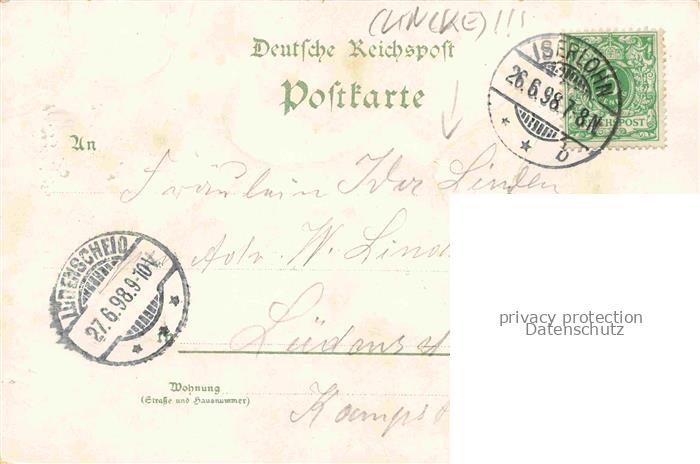 (LINCKE)!!!
Deutsche Reichspost
Postkarte
ISERLOHN
26.6.98.7-8.N.
b
REICHSPOST
An
Fräulein Ida Linden
Adr. W. Lind
LÜDENSCHEID
27.6.98.9-10V.
in
Lüdens
Wohnung
(Straße und Hausnummer)
Kamps
privacy protection
Datenschutz